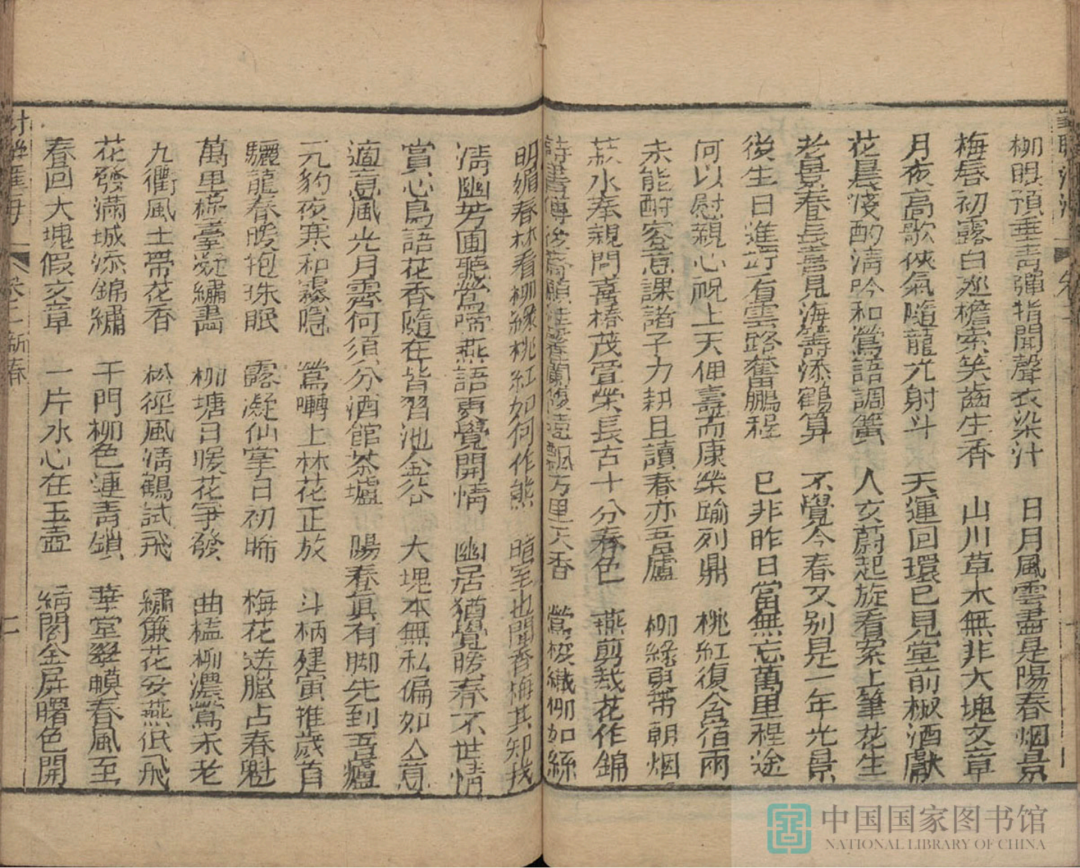 柳眼預垂青彈指開聲衣染汁 日月風雲盡是陽春烟景
梅唇初露白巡檐索笑齒生香 山川草木無非大塊文章
月夜高歌俠氣隨龍光射斗 天運回環已見堂前椒酒獻
花晨淺酌清吟和鶯語調簧 人文蔚起旋看案上筆花生
老景春長喜見海籌添鶴算 不覺今春又別是一年光景
後生日進訝有雲路奮鵬程 已非昨日當無忘萬里程途
何以慰親心祝上天俾壽而康榮踰列鼎 桃紅復含宿雨
未能酧客意課諸子力耕且讀春亦吾廬 柳綠更帶朝烟
菽水奉親問喜椿茂萱榮長占十分春色 燕剪裁花作錦
詩書傳後 萬里天香 鶯梭織柳如絲
明媚春林看柳綠桃紅如何作態 暄室也聞香梅其知我
清幽芳圃聽鶯啼燕語更覺開情 幽居猶覺勝春不世情
賞心鳥語花香隨在皆習池金谷 大塊本無私偏如人意
適意風光月霽何須分酒館茶壚 陽春真有脚先到吾廬
元豹夜寒和霧隱 鶯囀上林花正放 斗柄建寅推歲首
驪龍春暖抱珠眠 露凝仙掌日初晞 梅花送臘占春魁
萬里樓臺凝繡畵 柳塘日暖花爭發 曲檻柳濃鶯未老
九衢風土帶花香 松徑風清鶴試飛 繡簾花妥燕低飛
花發滿城添錦繡 千門柳色連青鎖 華堂翠幙春風至
春回大塊假文章 一片水心在玉壺 綺閣金屏曙色開
卷二新春
中国国家图书馆
NATIONAL LIBRARY OF CHINA